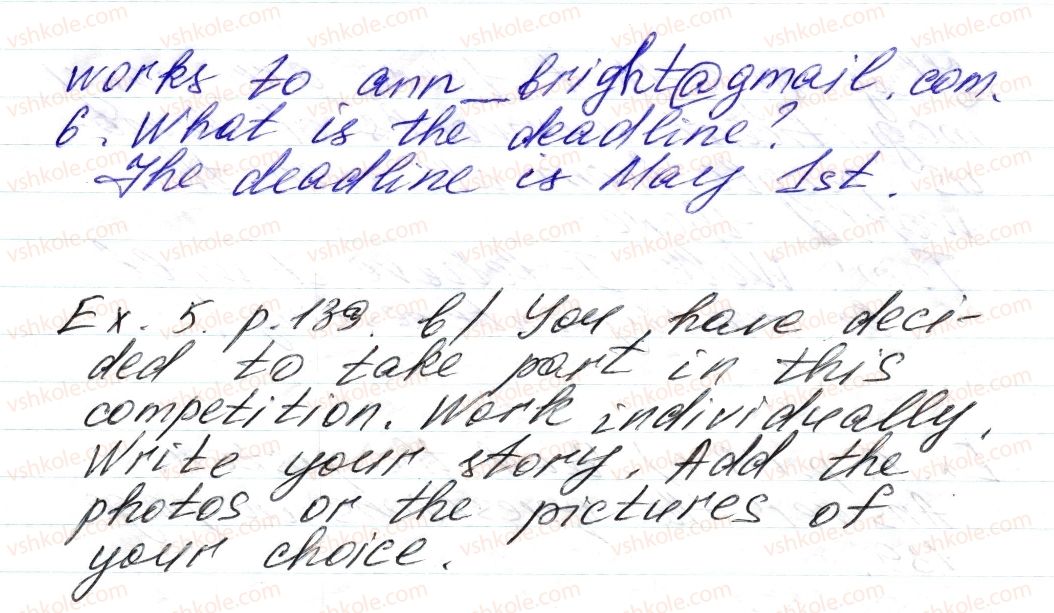 works to ann_bright@gmail.com.
6. What is the deadline?
The deadline is May 1st.
Ex. 5. p. 139. b) You have deci-
ded to take part in this
competition. Work individually.
Write your story. Add the
photos or the pictures of
your choice.